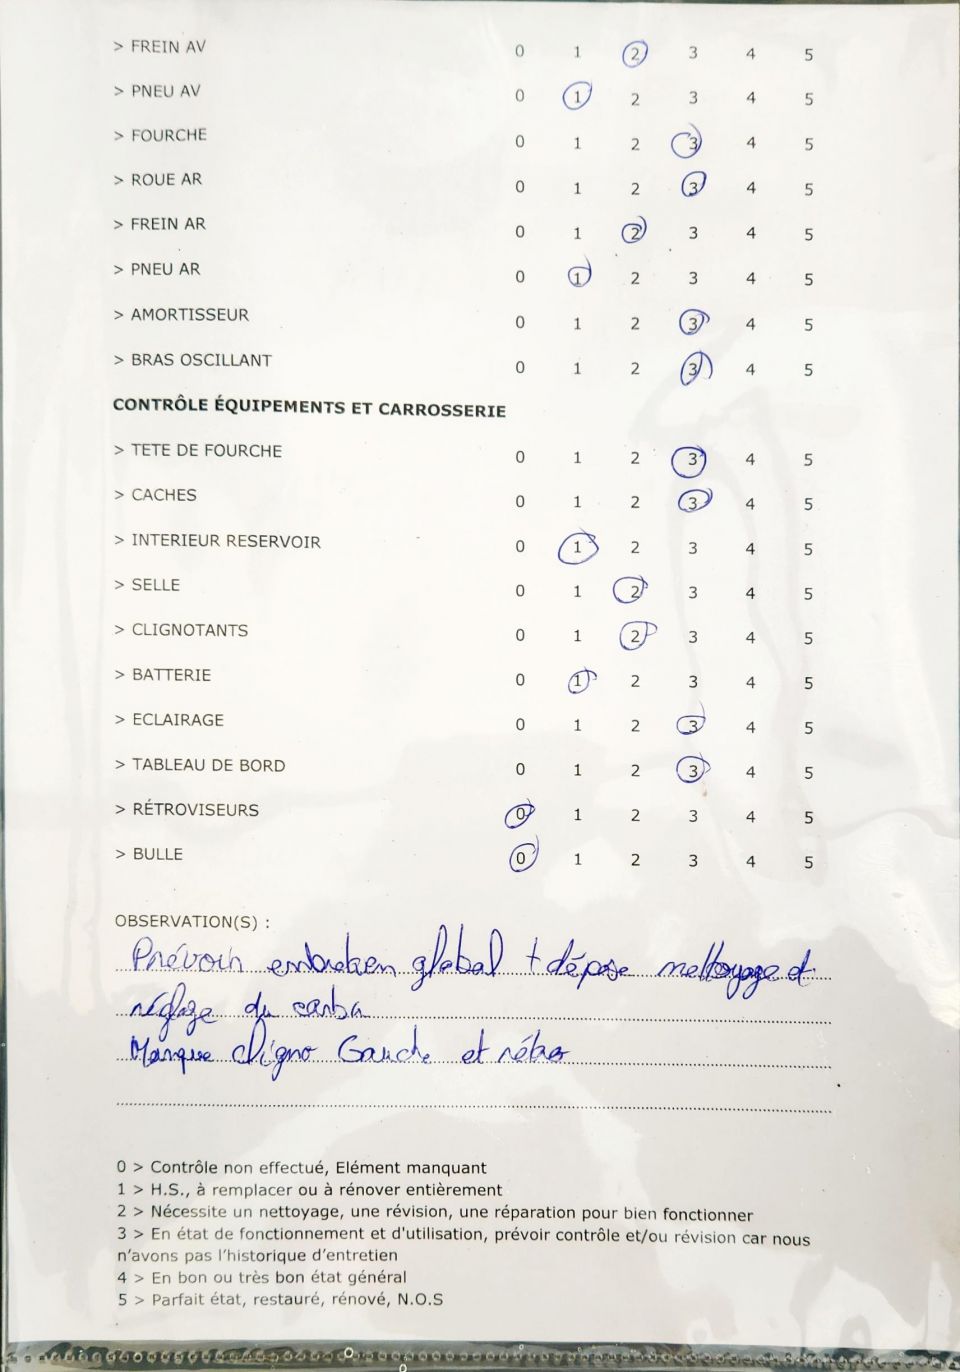 > FREIN AV 0 1 2 3 4 5
> PNEU AV 0 1 2 3 4 5
> FOURCHE 0 1 2 3 4 5
> ROUE AR 0 1 2 3 4 5
> FREIN AR 0 1 2 3 4 5
> PNEU AR 0 1 2 3 4 5
> AMORTISSEUR 0 1 2 3 4 5
> BRAS OSCILLANT 0 1 2 3 4 5
CONTRÔLE ÉQUIPEMENTS ET CARROSSERIE
> TETE DE FOURCHE 0 1 2 3 4 5
> CACHES 0 1 2 3 4 5
> INTERIEUR RESERVOIR 0 1 2 3 4 5
> SELLE 0 1 2 3 4 5
> CLIGNOTANTS 0 1 2 3 4 5
> BATTERIE 0 1 2 3 4 5
> ECLAIRAGE 0 1 2 3 4 5
> TABLEAU DE BORD 0 1 2 3 4 5
> RÉTROVISEURS 0 1 2 3 4 5
> BULLE 0 1 2 3 4 5
OBSERVATION(S) :
Prévoir entretien global + dépose nettoyage et
réglage du carbu
Manque cligno Gauche et rétros
0 > Contrôle non effectué, Elément manquant
1 > H.S., à remplacer ou à rénover entièrement
2 > Nécessite un nettoyage, une révision, une réparation pour bien fonctionner
3 > En état de fonctionnement et d'utilisation, prévoir contrôle et/ou révision car nous
n'avons pas l'historique d'entretien
4 > En bon ou très bon état général
5 > Parfait état, restauré, rénové, N.O.S